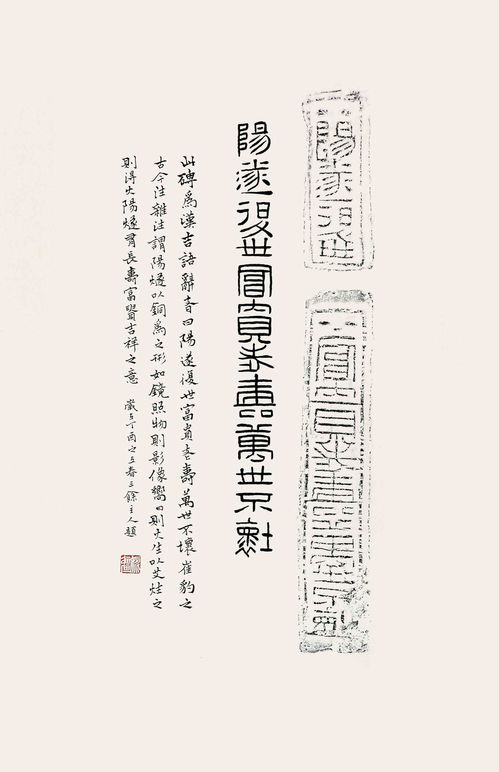 陽遂復世富貴老壽萬世不壞
此磚為漢吉語辭音曰陽遂復世富貴老壽萬世不壞崔豹之
古今注雜注謂陽燧以銅為之形如鏡照物則影像嚮日則火生以艾炷之
則得火陽燧有長壽富貴吉祥之意
歲在丁酉之立春三餘主人題